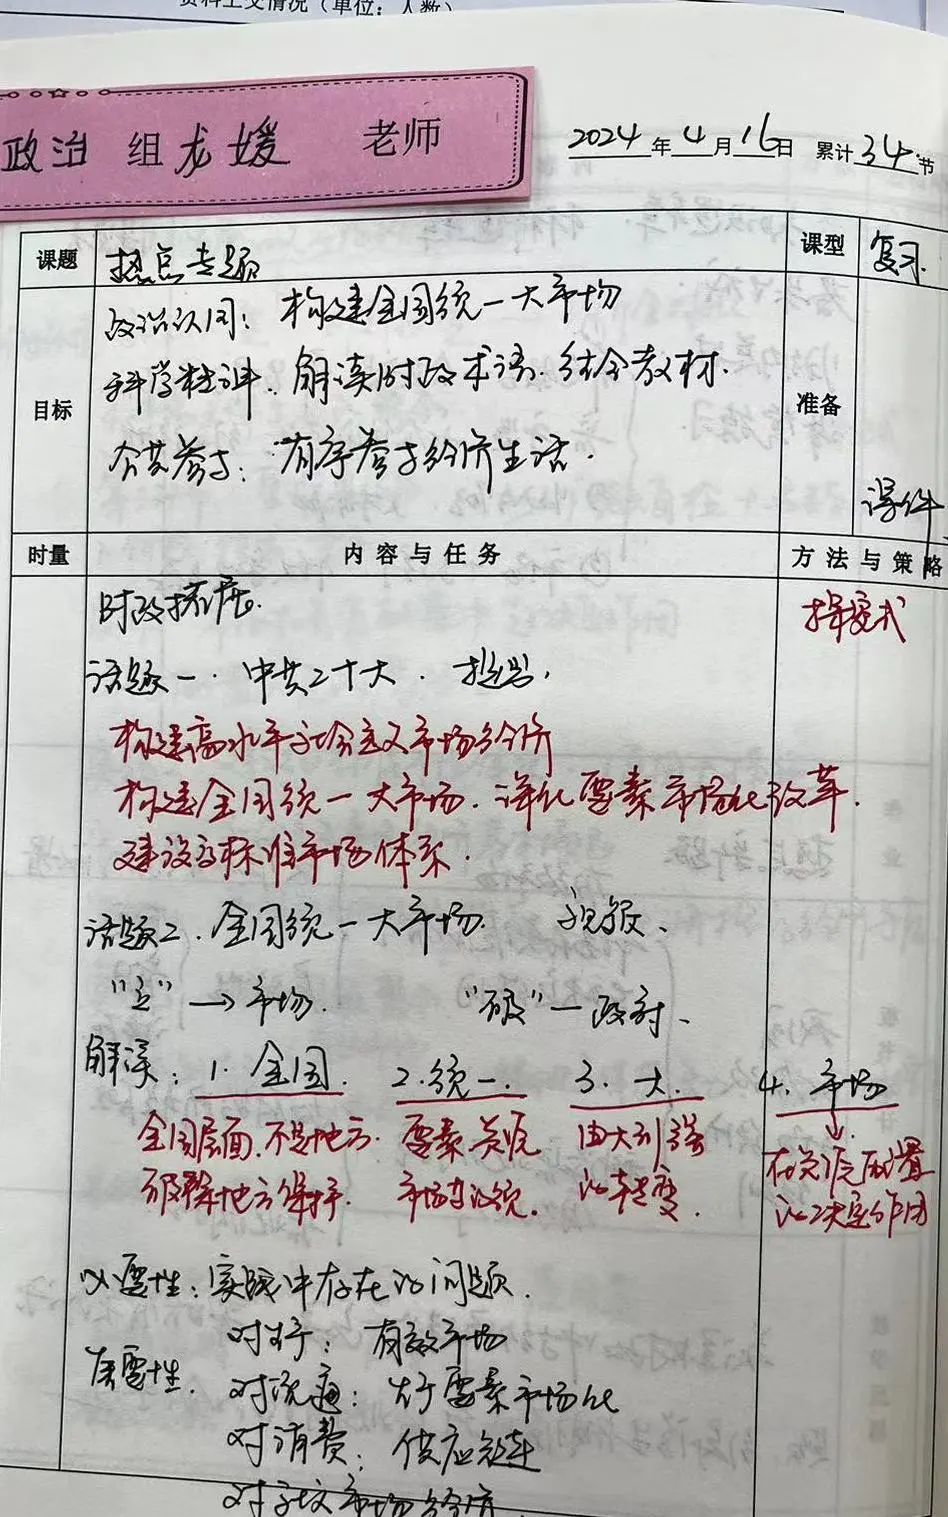 政治 组 龙媛 老师
2024 年 4 月 16 日 累计 34 节
课题 热点专题 课型 复习
目标 政治认同：构建全国统一大市场
科学精神：解读时政术语．结合教材．
公共参与：有序参与经济生活．
准备 课件
时量 内容与任务 方法与策略
时政播报． 探究式
话题一．中共二十大．提出，
构建高水平社会主义市场经济
构建全国统一大市场．深化要素市场化改革．
建设高标准市场体系．
话题二．全国统一大市场． 视频、
“立”→市场． “破”—政府、
解读：1．全国． 2．统一． 3．大． 4．市场
全国层面．不是地方．
破除地方保护．
要素资源
市场
由大到强
的转变．
在资源配置
的决定作用
必要性：实践中存在的问题．
重要性． 对生产：有效市场
对流通： 要素市场化
对消费：供应链